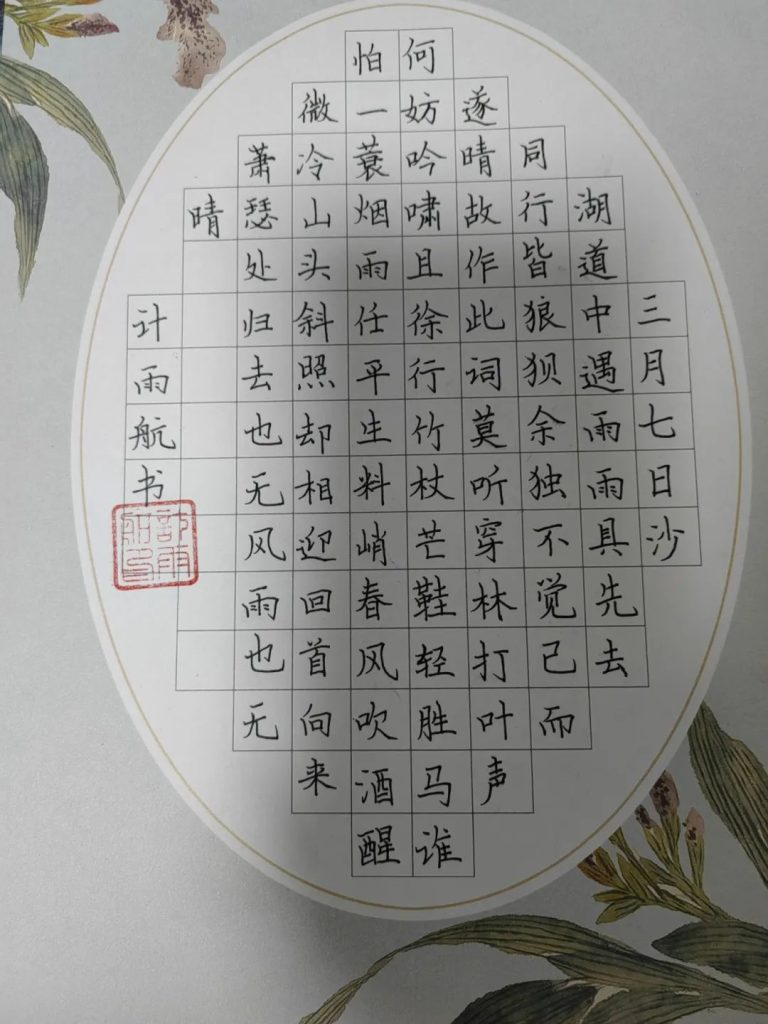 三月七日沙
湖道中遇雨雨具先去
同行皆狼狈余独不觉已而
遂晴故作此词莫听穿林打叶声
何妨吟啸且徐行竹杖芒鞋轻胜马谁
怕一蓑烟雨任平生料峭春风吹酒醒
微冷山头斜照却相迎回首向来
萧瑟处归去也无风雨也无
晴
计雨航书